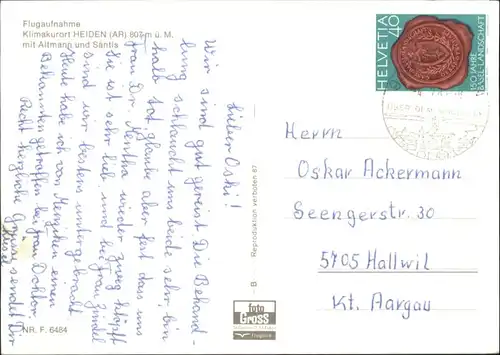 Flugaufnahme
Klimakurort HEIDEN (AR) 807 m ü. M.
mit Altmann und Säntis
Lieber Oski!
Wir sind gut gereist. Die Behand-
lung schlaucht uns beide sehr bin
halb tot glaube aber fest dass uns
Frau Dr. Nentha wieder zweg kläpft
Sie ist sehr lieb und bei Frau Zündel
sind wir bestens untergebracht
Heute habe ich von Menziken einen
Bekannten getroffen bei Frau Doktor.
Recht herzliche Grüsse sendet Dir
NR. F. 6484
B
Reproduktion verboten 67
foto
Gross
HELVETIA 40
150 JAHRE
BASEL-LANDSCHAFT
Herrn
Oskar Ackermann
Seengerstr. 30
5705 Hallwil
Kt. Aargau